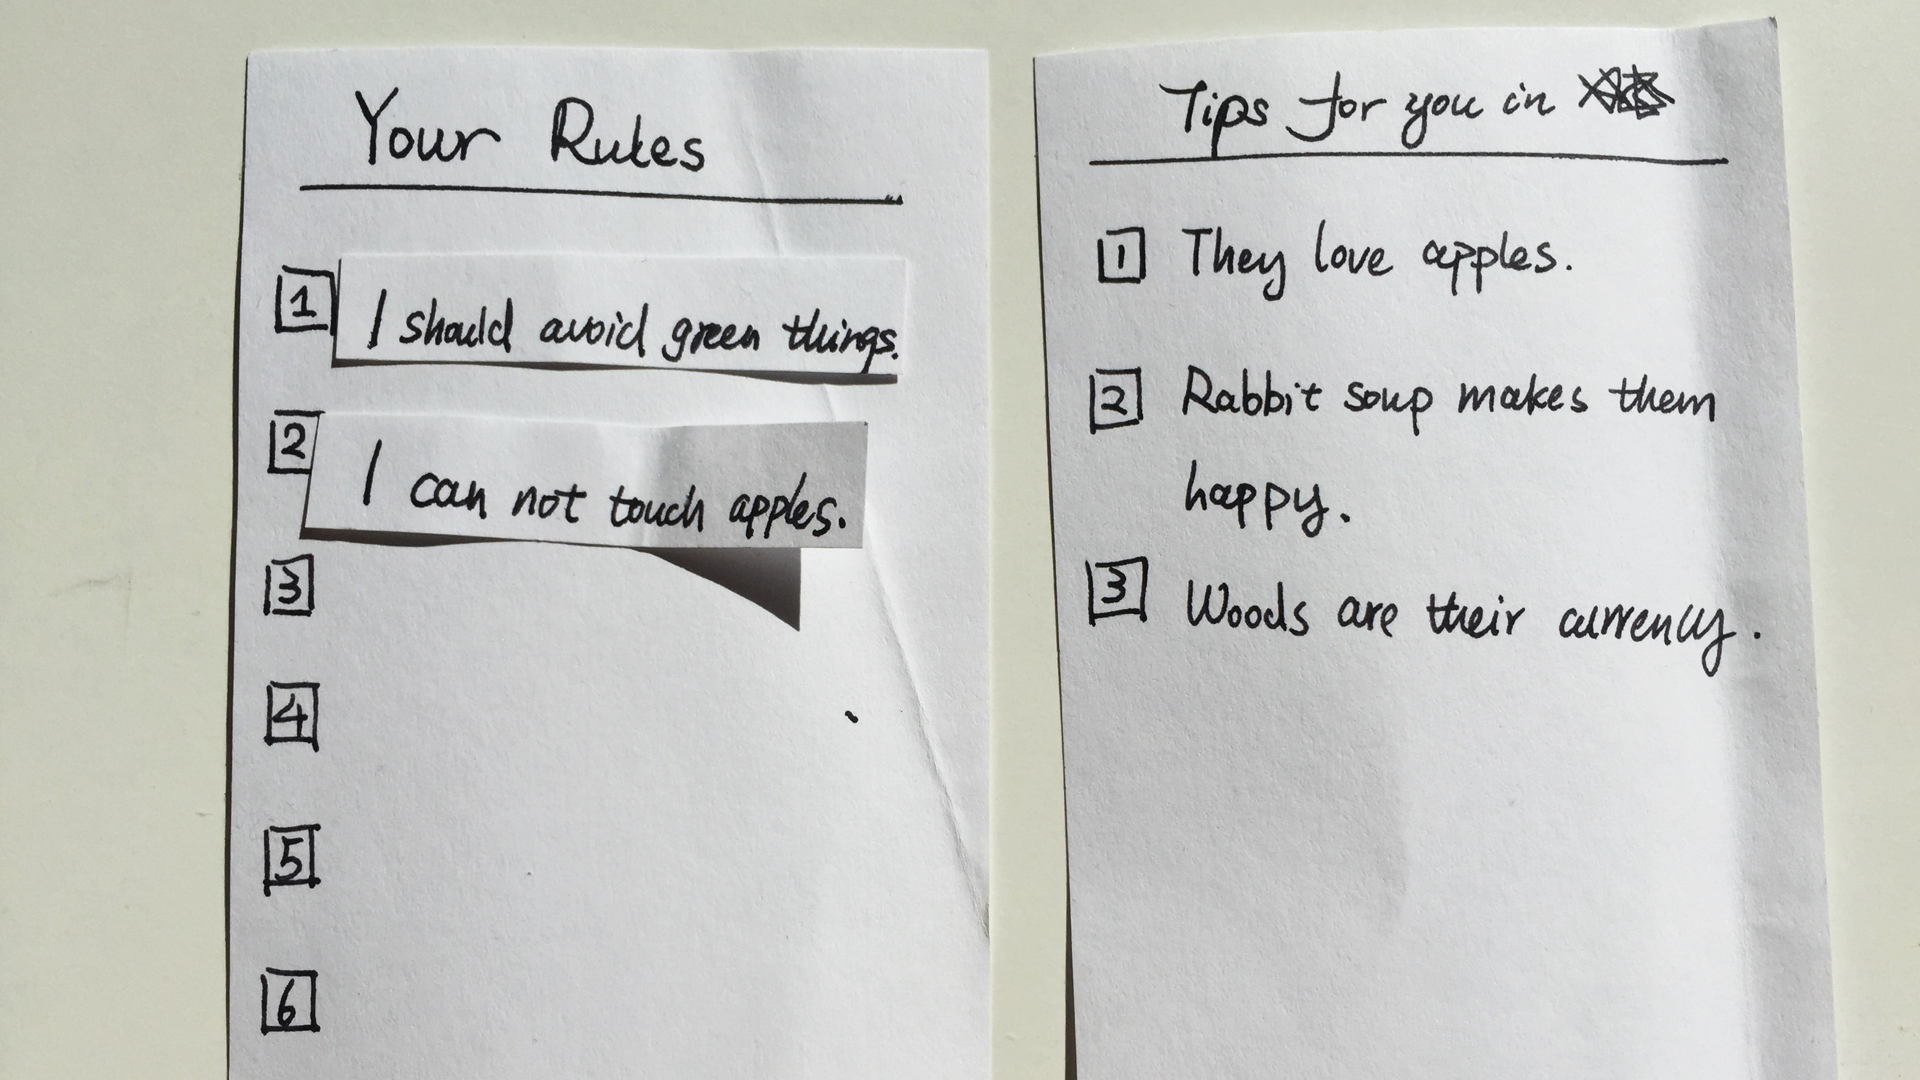 Your Rules
1 I should avoid green things.
2 I can not touch apples.
3
4
5
6
Tips for you in
1 They love apples.
2 Rabbit soup makes them
happy.
3 Woods are their currency.